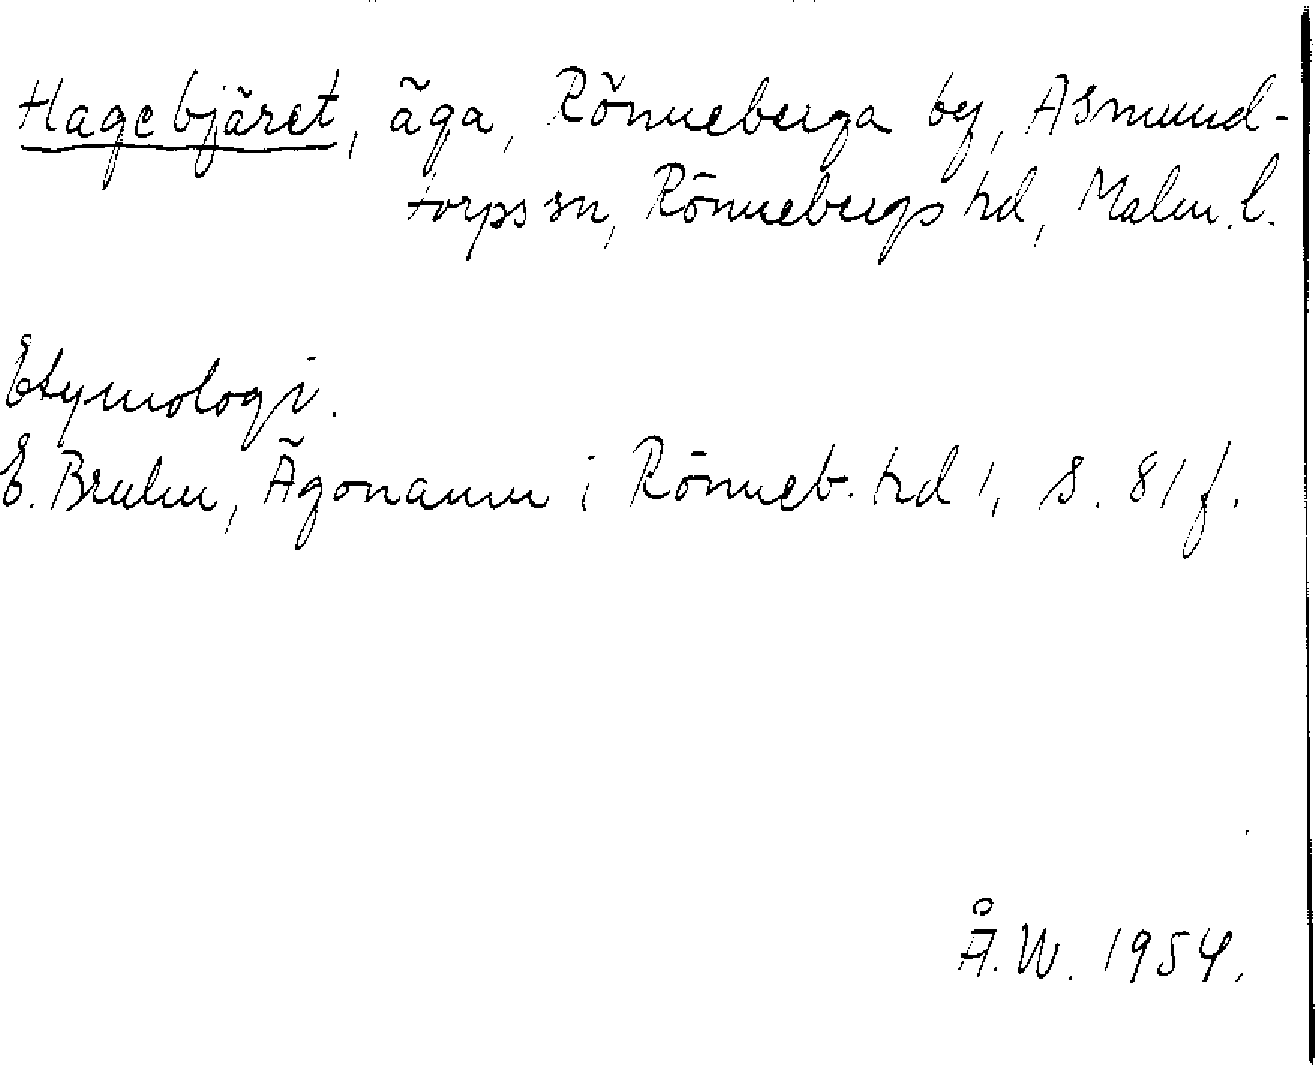 Hagebjäret, äga, Rönneberga by, Asmund-
torps sn, Rönnebergs hd, Malm. l.
Etymologi.
E. Bruhn, Ägonamn i Rönneb. hd 1, s. 81 f.
Å. W. 1954.